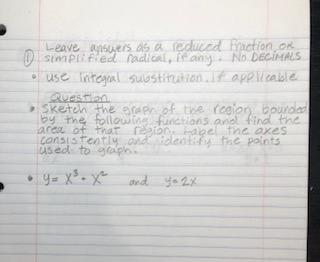 Leave answers as a reduced fraction or
① simplified radical, if any. No DECIMALS
• use Integral substitution, if applicable
Question
• Sketch the graph of the region bounded
by the following functions and find the
area of that region. Label the axes
consistently and identify the points
used to graph.
• y = x³ - x² and y = 2x